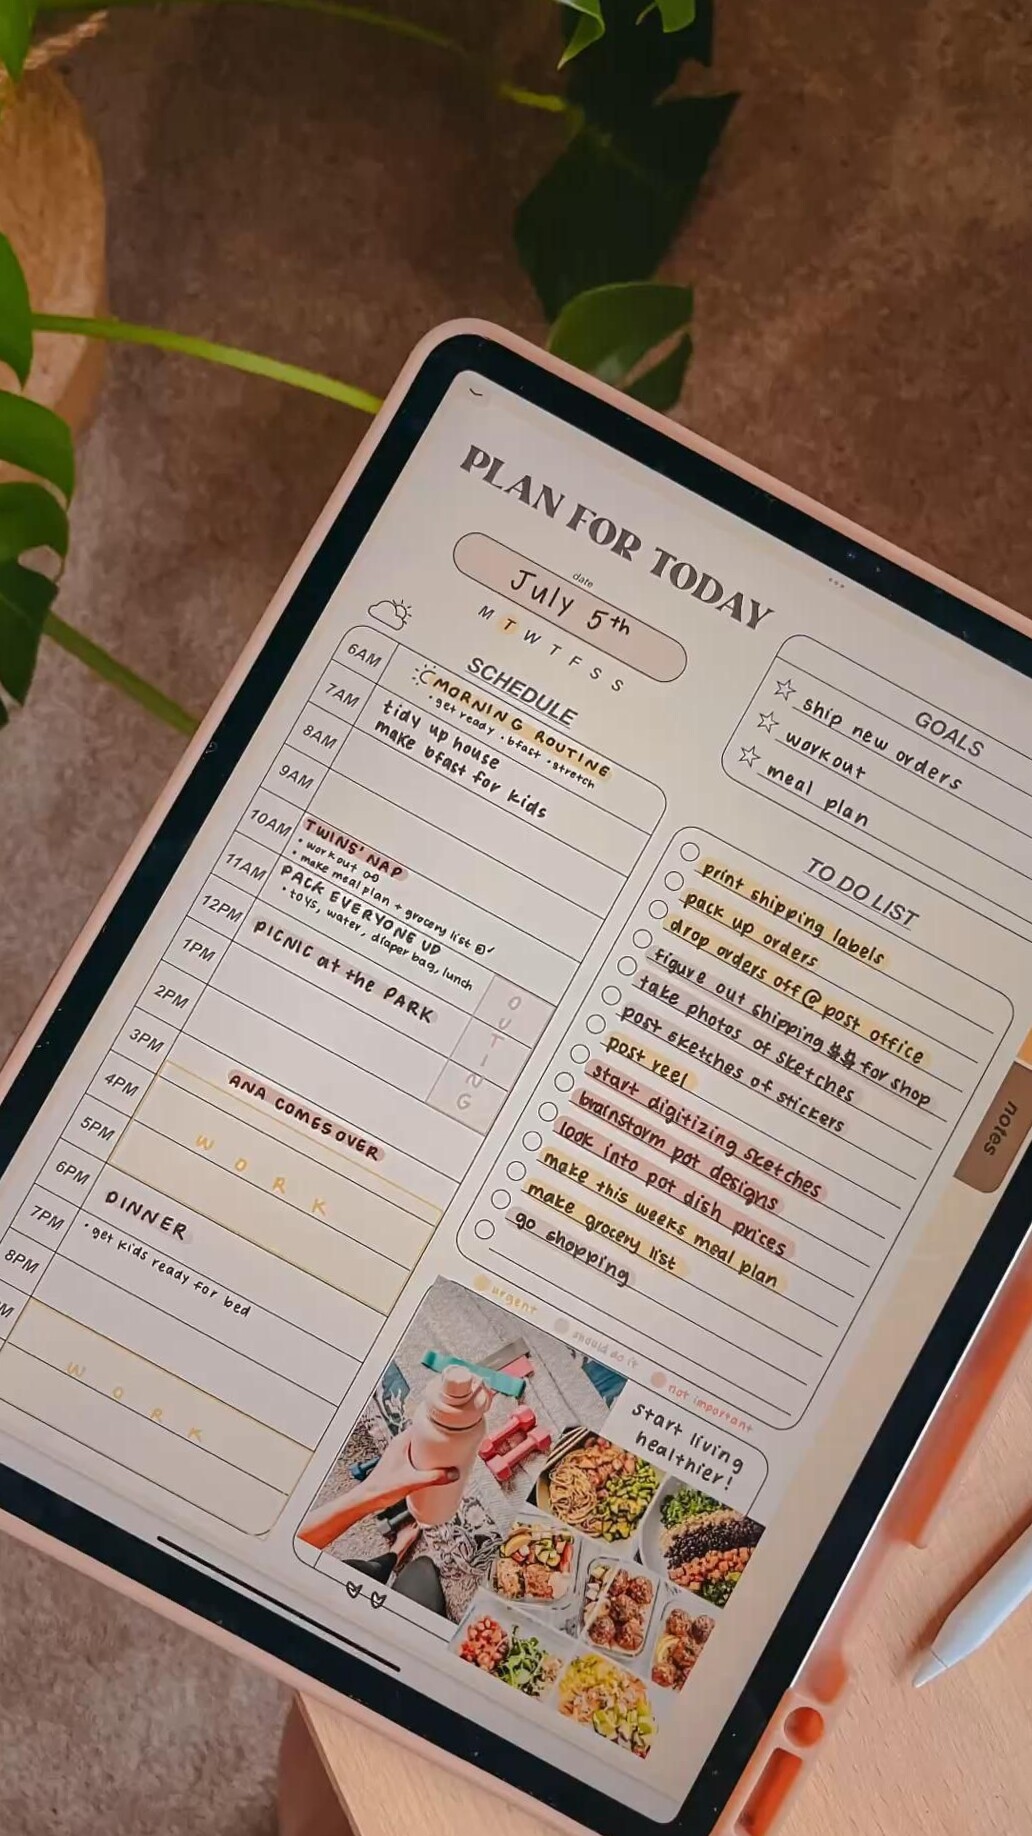 PLAN FOR TODAY
date
July 5th
M T W T F S S
SCHEDULE
6AM
MORNING ROUTINE
• get ready • bfast • stretch
7AM
tidy up house
make bfast for kids
8AM
9AM
10AM
TWINS' NAP
• workout
• make meal plan + grocery list
11AM
PACK EVERYONE UP
• toys, water, diaper bag, lunch
12PM
PICNIC at the PARK
OUTING
1PM
2PM
3PM
ANA COMES OVER
4PM
WORK
5PM
6PM
DINNER
7PM
• get kids ready for bed
8PM
WORK
GOALS
ship new orders
workout
meal plan
TO DO LIST
print shipping labels
pack up orders
drop orders off @ post office
figure out shipping $$ for shop
take photos of sketches
post sketches of stickers
post reel
start digitizing sketches
brainstorm pot designs
look into pot dish prices
make this weeks meal plan
make grocery list
go shopping
urgent
should do it
not important
start living
healthier!
notes